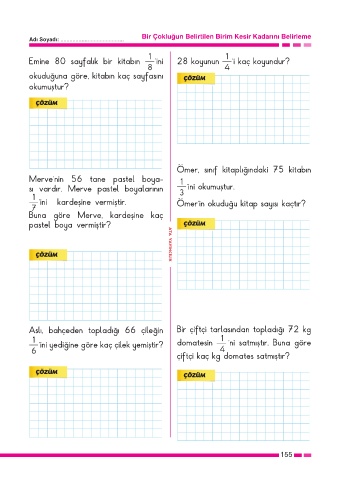 Adı Soyadı: ......................................
Bir Çokluğun Belirtilen Birim Kesir Kadarını Belirleme
Emine 80 sayfalık bir kitabın 1/8 'ini
okuduğuna göre, kitabın kaç sayfasını
okumuştur?
ÇÖZÜM
Merve'nin 56 tane pastel boya-
sı vardır. Merve pastel boyalarının
1/7 'ini kardeşine vermiştir.
Buna göre Merve, kardeşine kaç
pastel boya vermiştir?
ÇÖZÜM
Aslı, bahçeden topladığı 66 çileğin
1/6 'ini yediğine göre kaç çilek yemiştir?
ÇÖZÜM
28 koyunun 1/4 'i kaç koyundur?
ÇÖZÜM
Ömer, sınıf kitaplığındaki 75 kitabın
1/3 'ini okumuştur.
Ömer'in okuduğu kitap sayısı kaçtır?
ÇÖZÜM
Bir çiftçi tarlasından topladığı 72 kg
domatesin 1/4 'ni satmıştır. Buna göre
çiftçi kaç kg domates satmıştır?
ÇÖZÜM
155